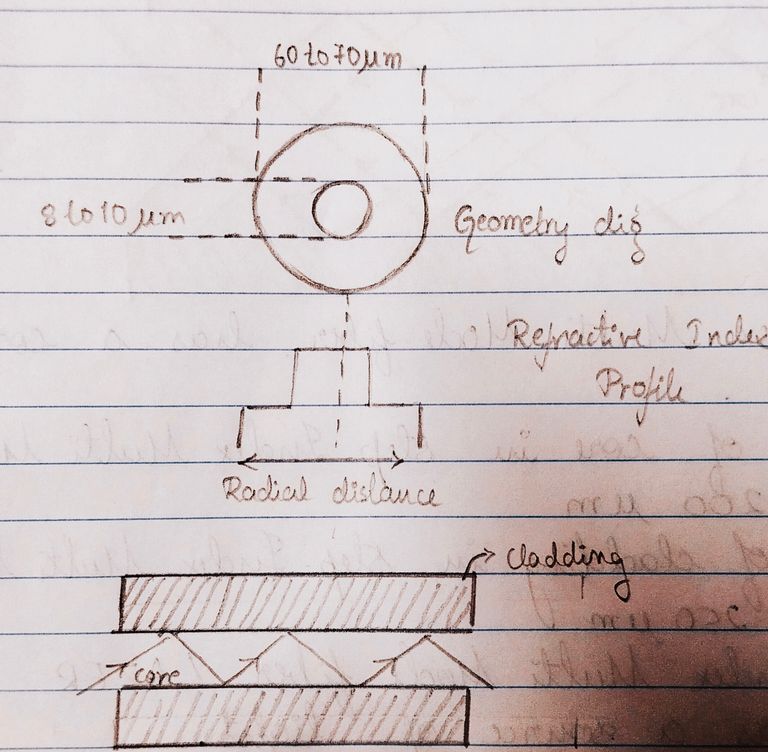 60 to 70 μm
8 to 10 μm
Geometry dig
Refractive Index
Profile
Radial distance
cladding
core